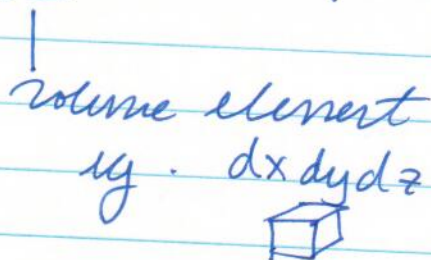 volume element
eg. dxdydz